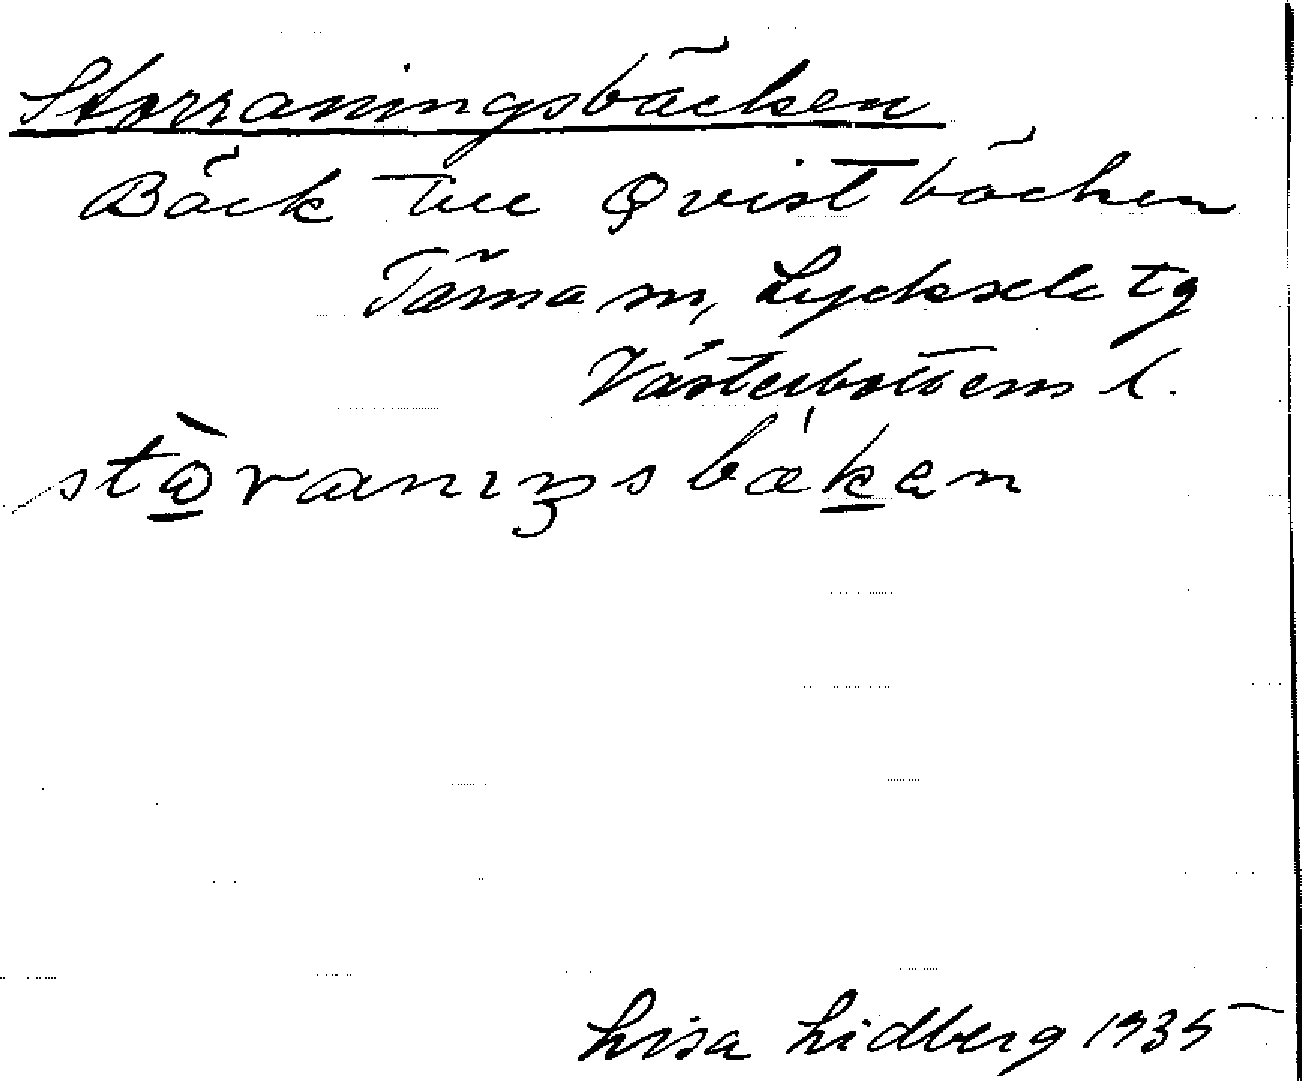 Storraningsbäcken
Bäck till Qvistbäcken
Tärna sn, Lycksele tg
Västerbottens l.
stò̠ranıŋsbæ'k̠ən
Lisa Lidberg 1935